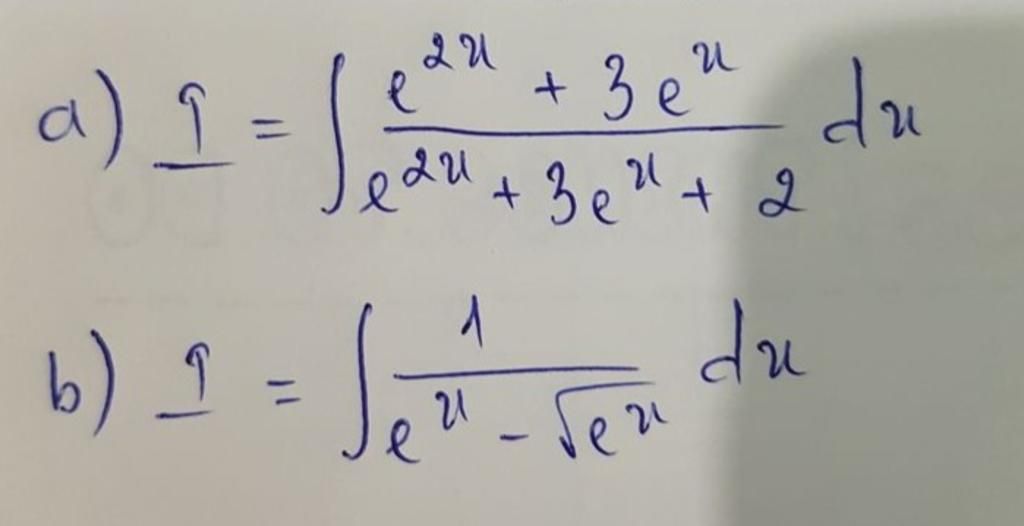 a) I = ∫ (e^{2x} + 3e^x) / (e^{2x} + 3e^x + 2) dx
b) I = ∫ 1 / (e^x - √(e^x)) dx